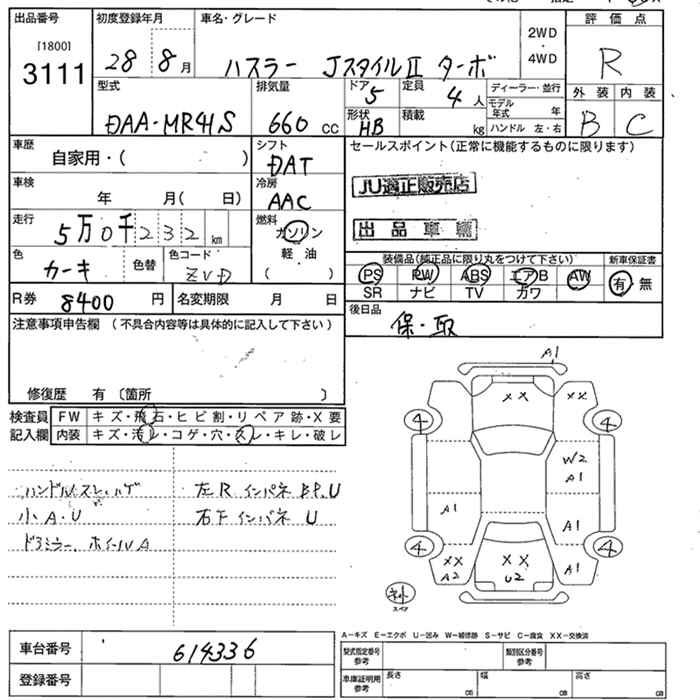 出品番号 初度登録年月 車名・グレード 評価点
[1800] 2WD
3111 28 8月 ハスラー JスタイルII ターボ 4WD R
型式 排気量 ドア 5 定員 4人 ディーラー・並行 外装 内装
モデル年式 年
DAA-MR41S 660 cc 形状 HB 積載 kg ハンドル 左・右 B C
車歴 シフト セールスポイント(正常に機能するものに限ります)
自家用・( ) DAT
JU適正販売店
車検 冷房
年 月( 日) AAC
出品車輌
走行 燃料
5万0千232km ガソリン
色 色替 色コード 軽油 装備品(純正品に限り丸をつけて下さい) 新車保証書
カーキ ZVD ( ) PS PW ABS エアB AW 有・無
SR ナビ TV カワ
R券 8400 円 名変期限 月 日 後日品
保・取
注意事項申告欄 (不具合内容等は具体的に記入して下さい)
修復歴 有 〔箇所 〕
検査員 FW キズ・飛石・ヒビ割・リペア跡・X要
記入欄 内装 キズ・汚レ・コゲ・穴・スレ・キレ・破レ
A1
XX XX
4 4
W2
A1
A1 A1
4 4
XX XX
A2 U2 A1
スペア
ハンドルスレ、ハゲ 左R インパネ BP.U
小A・U 右F インパネ U
ドアミラー、ホイールA
車台番号 614336
登録番号
A-キズ E-エクボ U-凹み W-補修跡 S-サビ C-腐食 XX-交換済
型式指定番号 参考 類別区分番号 参考
車庫証明用 参考 長さ cm 幅 cm 高さ cm